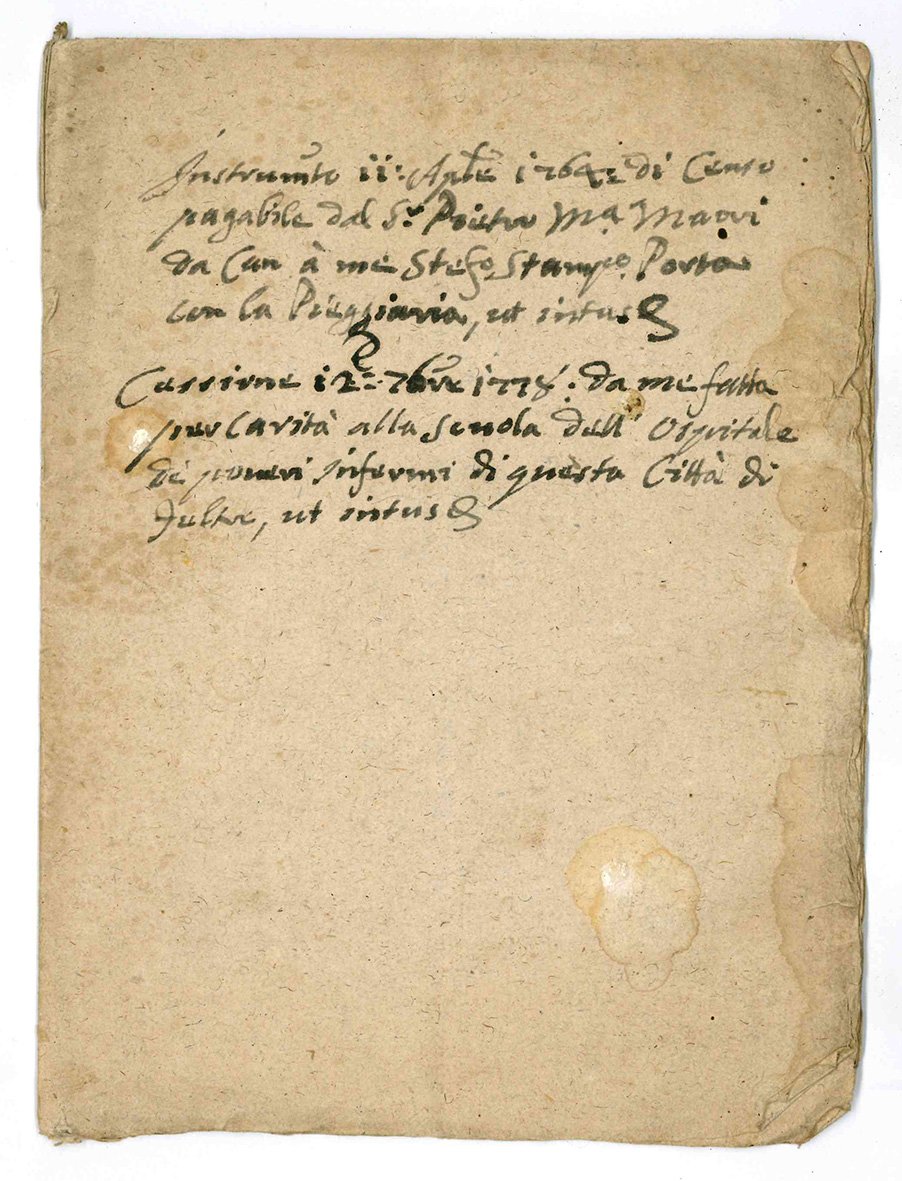 Instrumto ii: Aple 1764: di Censo
pagabile dal Sr. Pietro Ma. Maori
da Can à me Stefo. Stampo. Porta
con la Pieggiaria, ut intus
Cessione 12: 7bre 1778: da me fatta
per Carità alla Scuola dell' Ospitale
de poveri Infermi di questa Città di
Feltre, ut intus